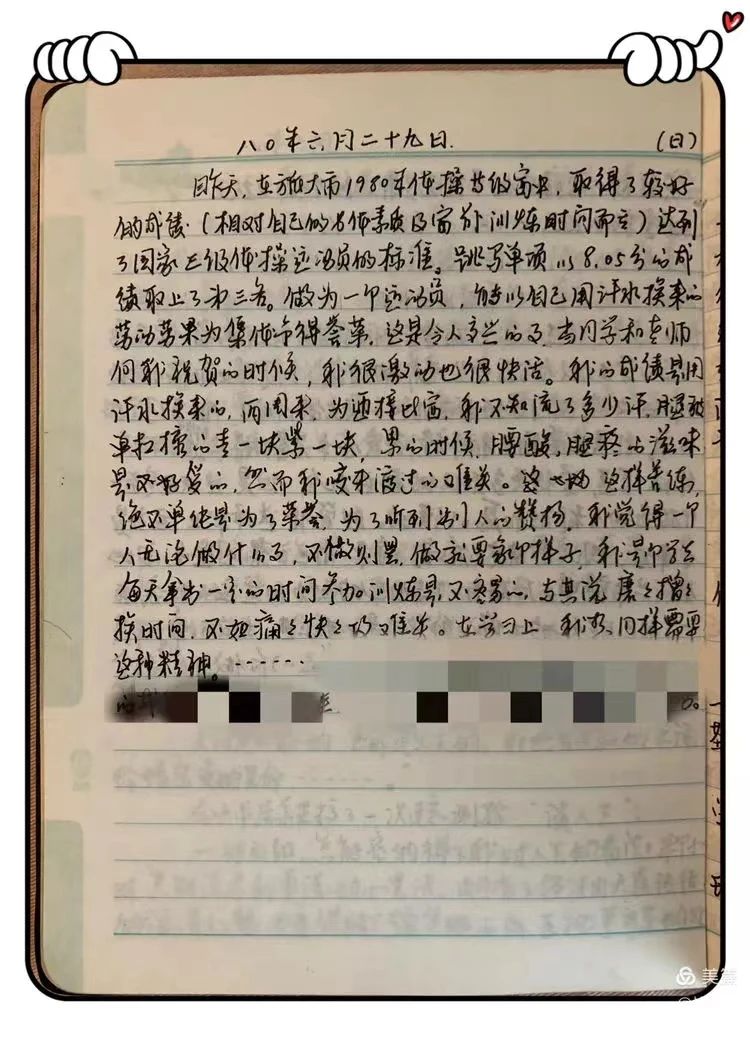 八0年六月二十九日. (日)
昨天,在旅大市1980年体操比赛中,取得了较好
的成绩(相对自己的身体素质及赛前训练时间而言)达到
了国家三级体操运动员的标准。跳马单项以8.05分的成
绩取上了第三名。做为一个运动员,能以自己用汗水换来的
劳动荣果为集体争得荣誉,这是令人高兴的事,当同学和老师
向我祝贺的时候,我很激动也很快活。我的成绩是用
汗水换来的,两周来,为迎接比赛,我不知流了多少汗,腿被
单杠撞的青一块紫一块,累的时候,腰酸,腿疼的滋味
是不好受的,然而我咬牙渡过的难关。这样苦练,
绝不单纯是为了荣誉,为了听到别人的赞扬,我觉得一个
人无论做什么事,不做则罢,做就要象个样子,我是个学生
每天拿出一定的时间参加训练是不容易的,与其说磨々蹭々
挨时间,不如痛々快々攻难关。在学习上一,同样需要
这种精神。……
美篇